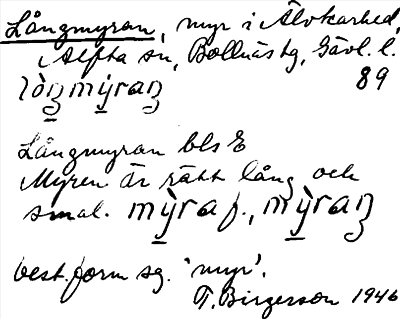 Långmyran, myr i Älvkarhed,
Alfta sn, Bollnäs tg, Gävl. l.
89
Långmyran bls E
Myren är rätt lång och
smal. mỳra f., mỳraŋ
best. form sg. 'myr'.
T. Birgerson 1946